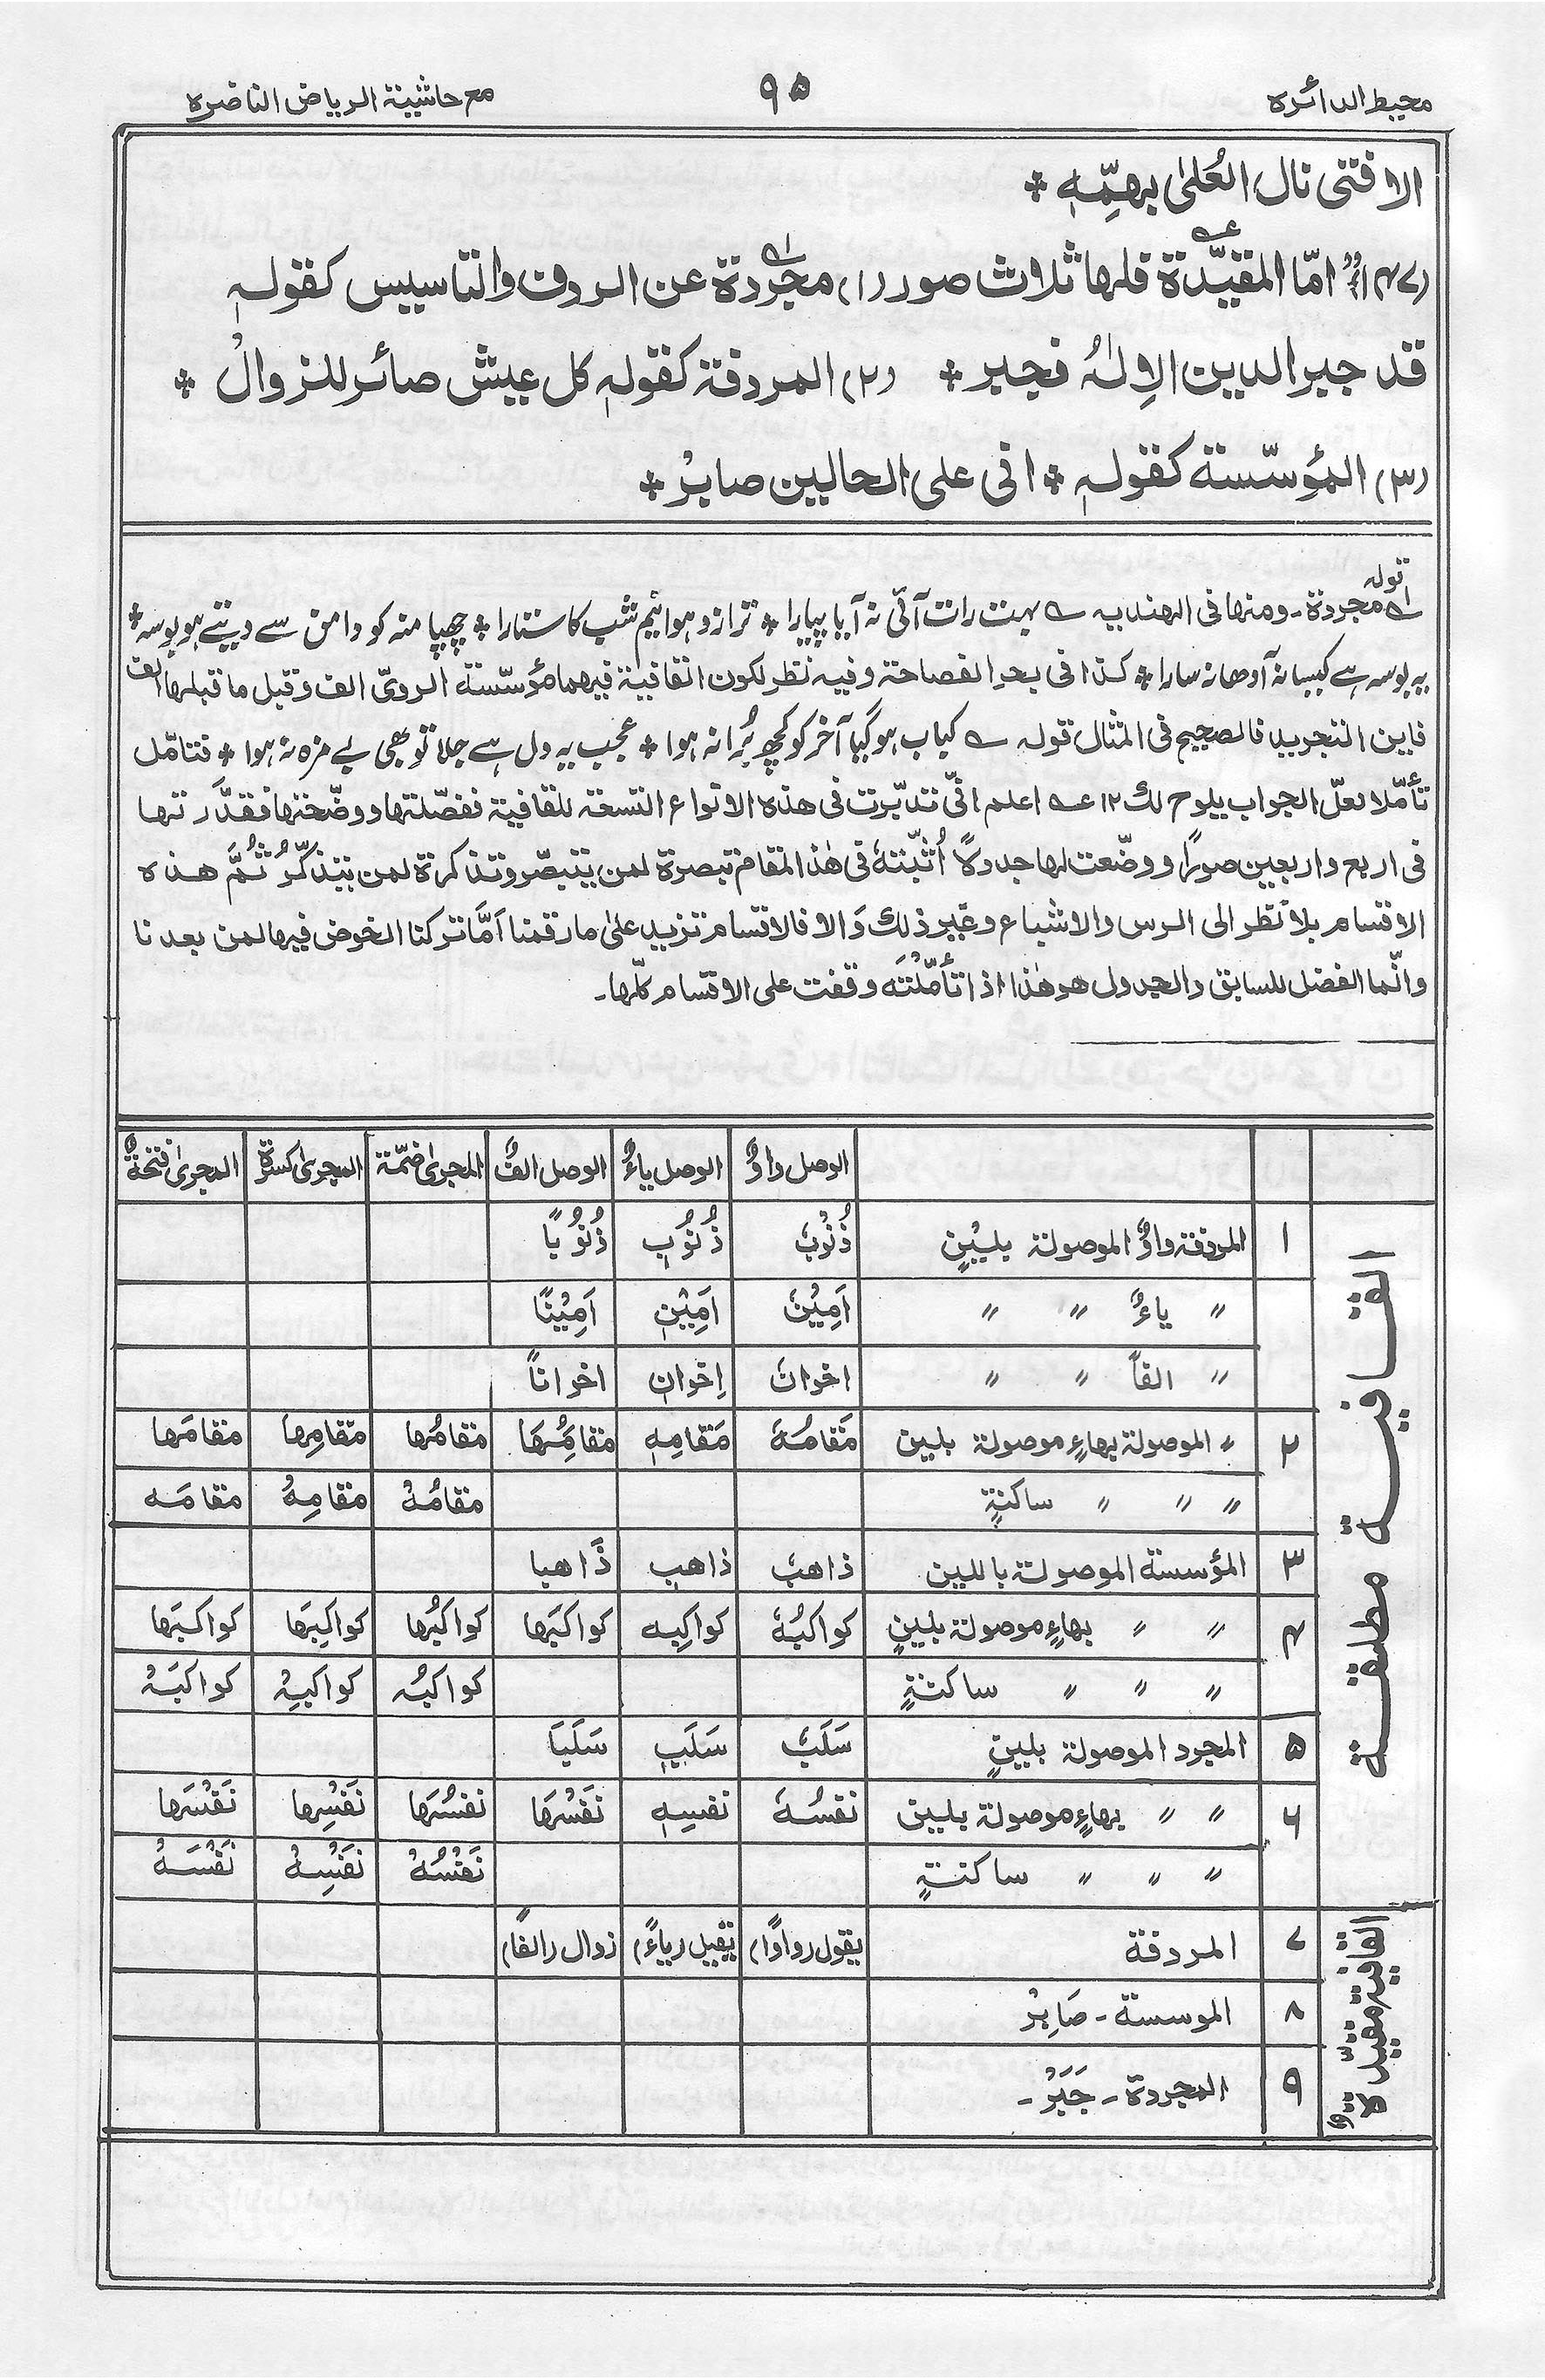 محیط الدائرہ
۹۵
مع حاشیۃ الریاض الناضرہ
الا فتی نال العُلیٰ بهِمِّہٖ *
امّا المقیَّدۃ فلها ثلاث صور (۱) مجردۃ عن الردف والتاسیس کقولہٖ
قد جبر الدین الاِلٰہُ فجبر * (۲) المردفۃ کقولہٖ کل عیش صائر للزوالْ *
(۳) المؤسّسۃ کقولہٖ * انی علی الحالین صابرْ *
قولہ
مجردۃ ـ ومنها فی الهندیہ ؎ بہت رات آئی نہ آیا پیارا * ترازو ہوا نیم شب کا ستارا * چھپا منہ کو دامن سے دیتے ہو بوسہ *
یہ بوسہ ہے کیسا نہ آدھا نہ سارا * کذا فی بحر الفصاحۃ وفیہ نظر لکون القافیۃ فیهما مؤسّسۃ الرویّ الف وقبل ما قبلها الف
فاین التجرید فالصحیح فی المثال قولہ ؎ کباب ہو گیا آخر کو کچھ بُرا نہ ہوا * عجب یہ دل ہے جلا تو بھی بے مزہ نہ ہوا * فتامّل
تأمّلا لعلّ الجواب یلوح لك ۱۲ عـہ اعلم انّی تدبّرت فی هذہ الانواع التسعۃ للقافیۃ ففصّلتها ووضّحتها فقدَّرتها
فی اربع واربعین صورًا ووضّعت لها جدولًا اُثبّتہٗ فی هٰذا المقام تبصرۃ لمن یتبصّر وتذکرۃ لمن یتذکّرُ ثُمَّ هذہ
الاقسام بلا نظر الی الرس والاشباع وغیر ذلك وَالا فالاقسام تزید علیٰ ما رقمنا اَمَّا ترکنا الخوض فیها لمن بعدنا
وانّما الفضل للسابق والجدول هو هٰذا اذا تأمّلْتَہ وقفت علی الاقسام کلّها۔
الوصل واوٌ الوصل یاءٌ الوصل الفٌ المجریٰ ضمّۃ المجریٰ کسرۃ المجریٰ فتحۃٌ
القافیۃ مطلقۃ
۱ المردفۃ واوٌ الموصولۃ بلیْنٍ ذُنُوْبٗ ذُنُوْبٖ ذُنُوْبًا
〃 یاءٌ 〃 〃 اَمِیْنٗ اَمِیْنٖ اَمِیْنًا
〃 الفاً 〃 〃 اخوانٗ اِخوانٖ اخواناً
۲ 〃 الموصولۃ بهاءٍ موصولۃ بلین مَقامُہٗ مَقامِہٖ مقامُهَا مقامُها مقامِها مقامَها
〃 〃 〃 ساکنۃٍ مقامُہْ مقامِہْ مقامَہ
۳ المؤسسۃ الموصولۃ باللین ذاهبٗ ذاهبٖ ذَاهبا
۴ 〃 〃 بهاءٍ موصولۃ بلینٍ کواکبُہٗ کواکِبہٖ کواکبَها کواکبُها کواکِبِها کواکبَها
〃 〃 〃 ساکنۃٍ کواکبُہ کواکبِہْ کواکبَہْ
۵ المجرد الموصولۃ بلینٍ سَلَبٗ سَلَبٖ سَلَبَا
۶ 〃 〃 بهاءٍ موصولۃ بلین نفسُہٗ نفسِہٖ نَفْسُهَا نفسُهَا نَفْسِها نَفْسَها
〃 〃 〃 ساکنۃٍ نَفْسُہْ نَفْسِہْ نَفْسَہْ
القافیۃ مقیّدۃ
۷ المردفۃ یقول (واوًا) یقیل (یاءً) زوال (الفا)
۸ الموسسۃ ـ صَابِرْ
۹ المجردۃ ـ جَبَرْ ـ